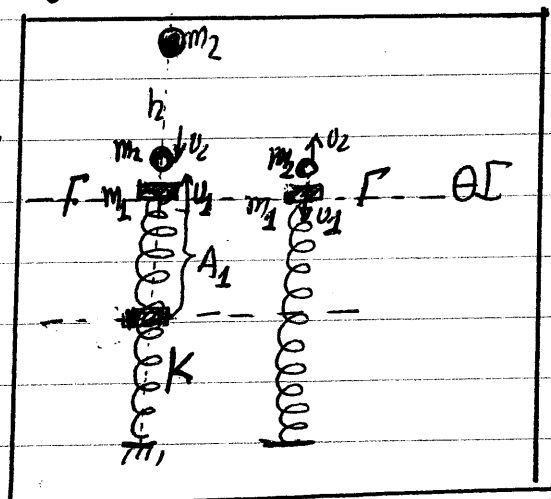 m₂
h
m₂ υ₂ m₂ υ₂
Γ m₁ υ₁ m₁ υ₁ Γ ΘΙ
A₁
K